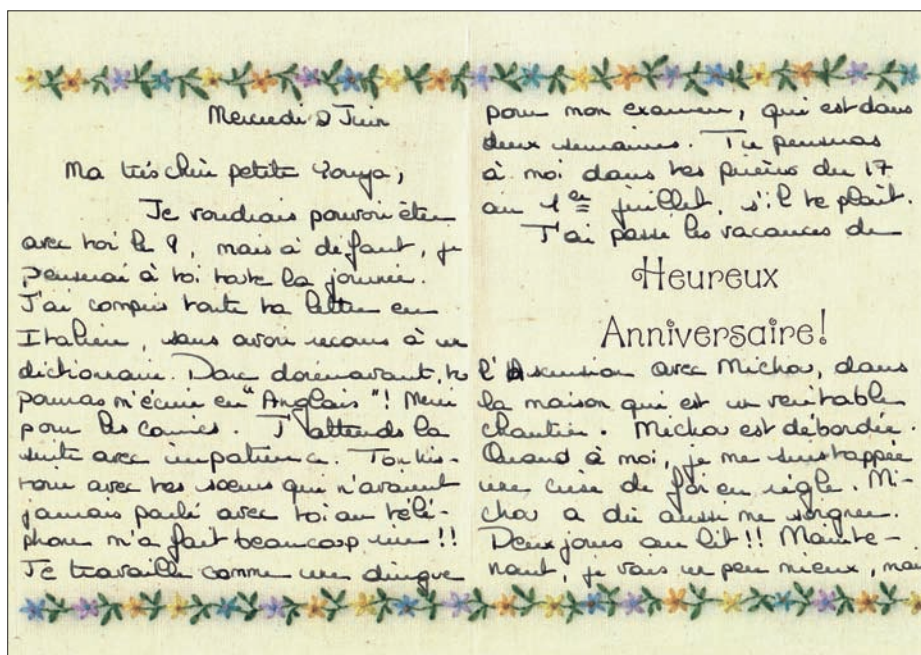 Mercredi 2 Juin
Ma très chère petite Youya,
Je voudrais pouvoir être
avec toi le 9, mais à défaut, je
penserai à toi toute la journée.
J'ai compris toute ta lettre en
Italien, sans avoir recours à un
dictionnaire. Donc dorénavant, tu
pourras m'écrire en "Anglais"! Merci
pour les . J'attends la
suite avec impatience. Ton his-
toire avec tes sœurs qui n'avaient
jamais parlé avec toi au télé-
phone m'a fait beaucoup rire!!
Je travaille comme une dingue
pour mon examen, qui est dans
deux semaines. Tu penseras
à moi dans tes prières du 17
au 1er juillet, s'il te plaît.
J'ai passé les vacances de
Heureux
Anniversaire!
l'Ascension avec Michou, dans
la maison qui est un véritable
chantier. Michou est débordée.
Quand à moi, je me suis tappée
une crise de foi en règle. Mi-
chou a dû aussi me soigner.
Deux jours au lit!! Mainte-
nant, je vais un peu mieux, mais